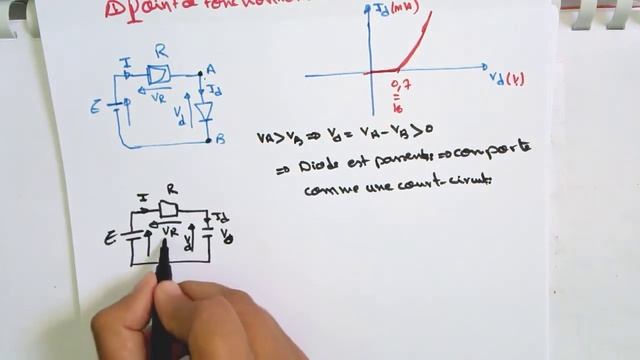 ① point de fonctionne
I R A
Id
E VR Vd
B
Id (mA)
Vd (V)
0,7
=
VA > VB ⇒ Vd = VA - VB > 0
⇒ Diode est passante ⇒ comporte
comme une court-circuit.
I R Id
E VR Vd V0